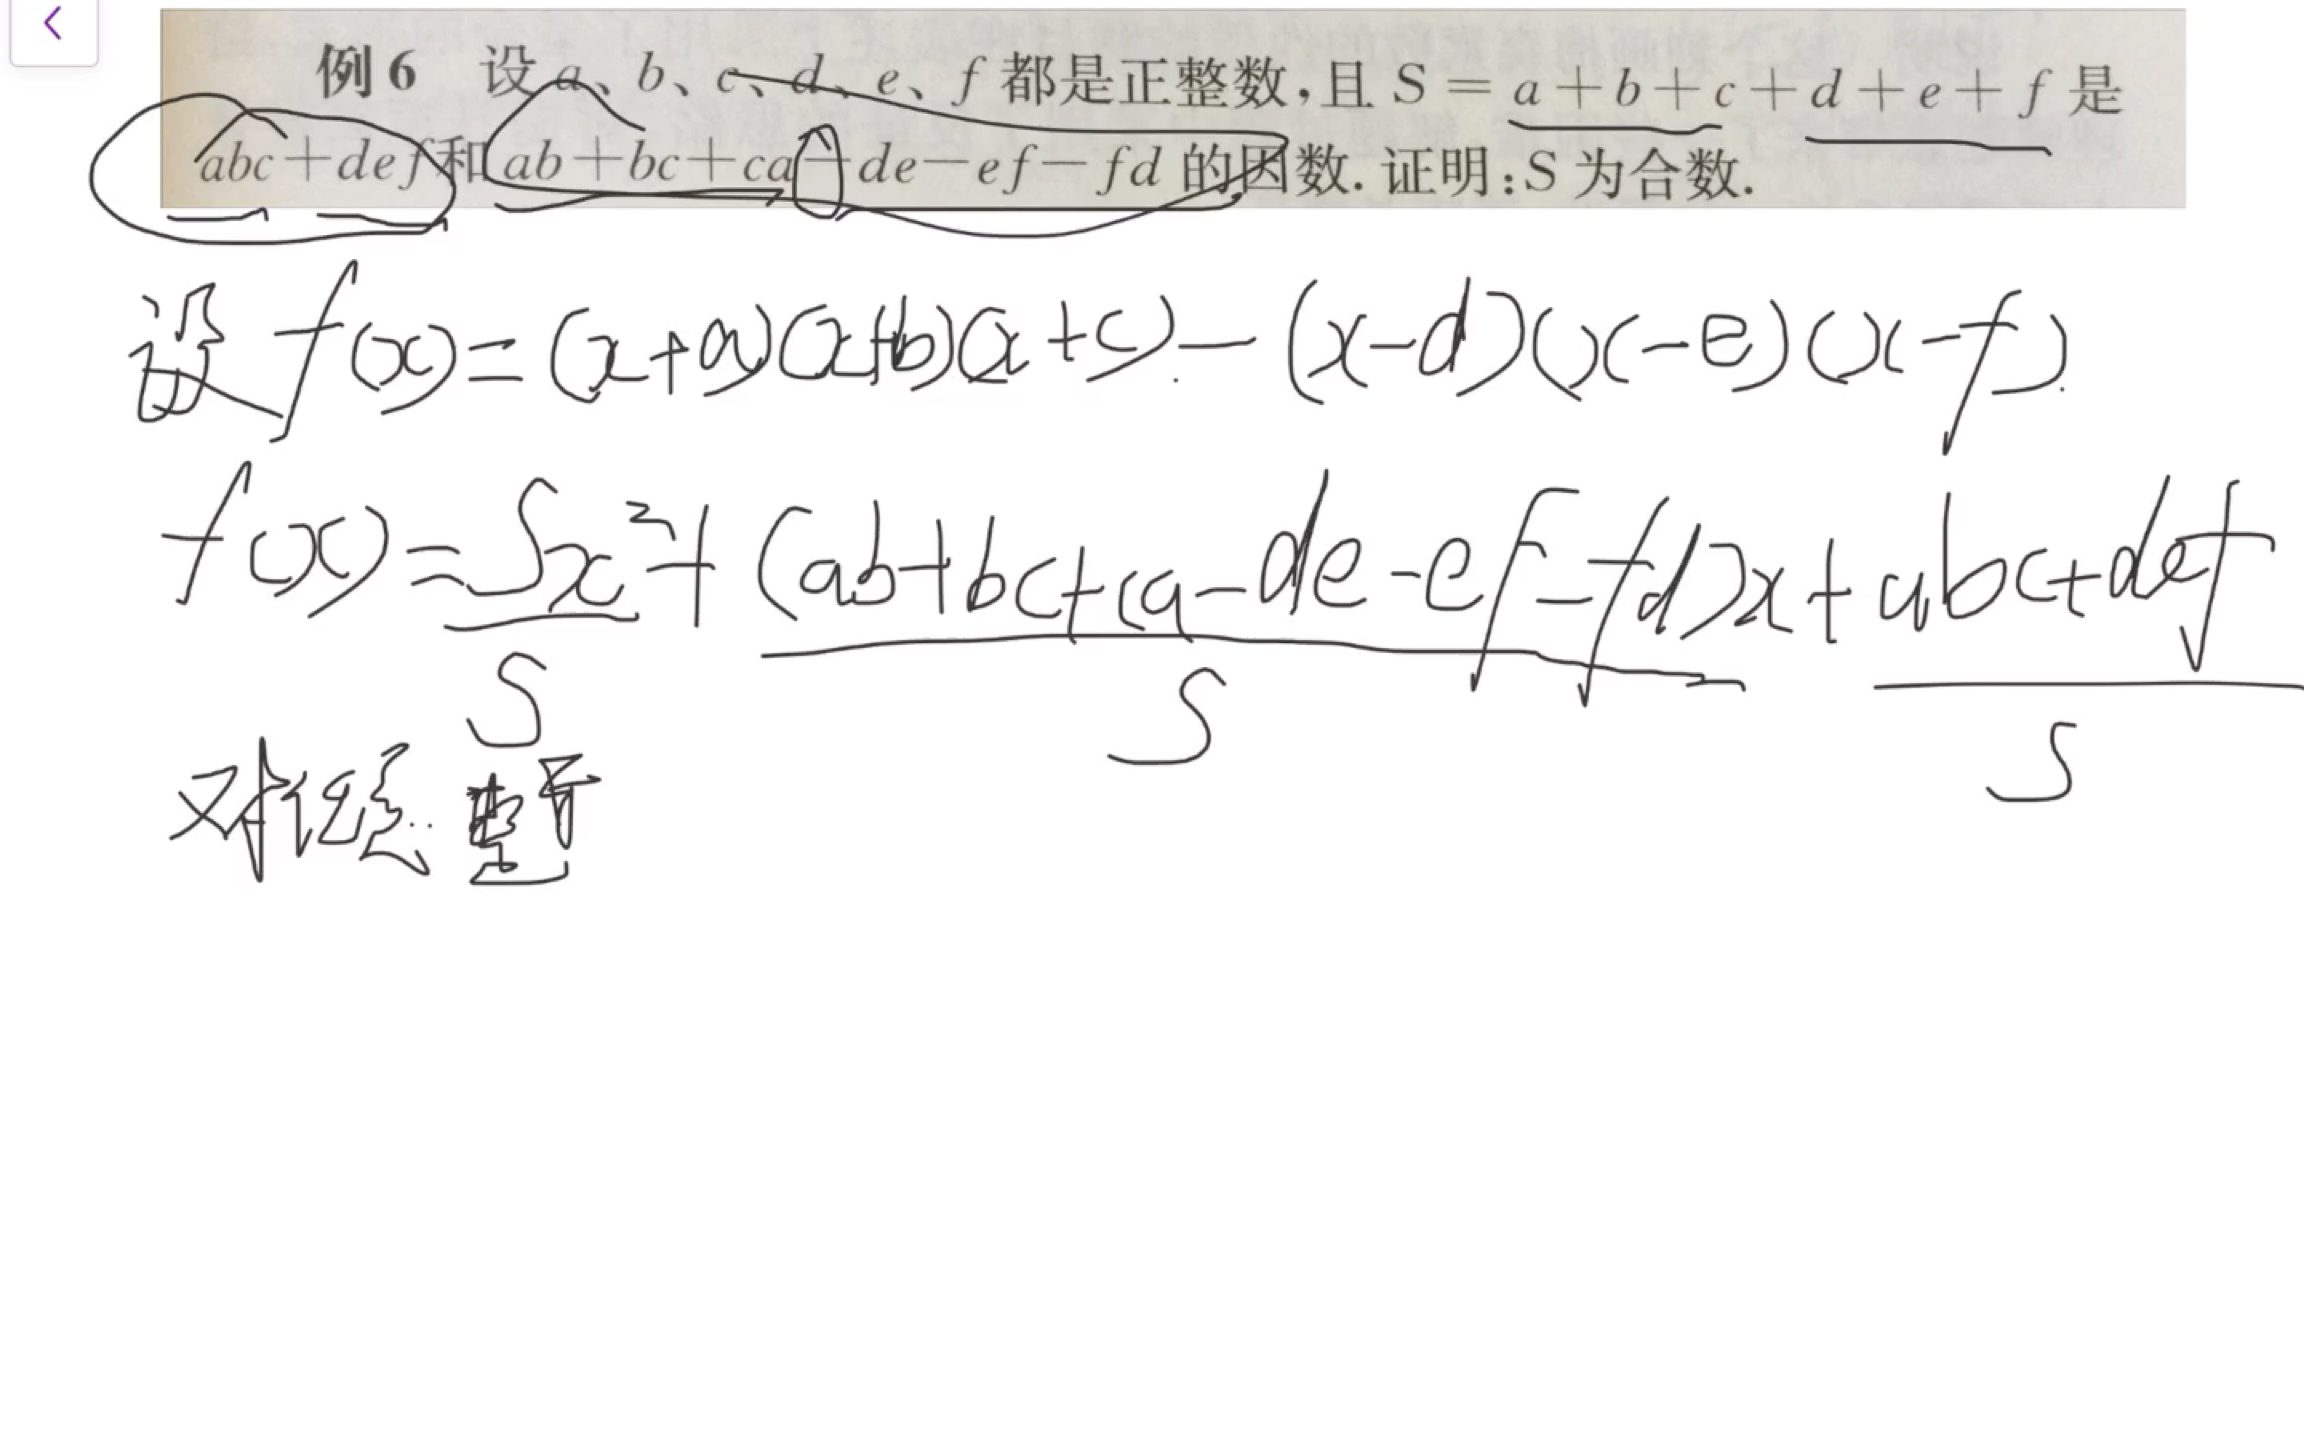 例6 设a、b、c、d、e、f都是正整数，且S＝a＋b＋c＋d＋e＋f是
abc＋def和ab＋bc＋ca－de－ef－fd的因数．证明：S为合数．
设 f(x)=(x+a)(x+b)(x+c)-(x-d)(x-e)(x-f).
f(x)=Sx²+(ab+bc+ca-de-ef-fd)x+abc+def
S S S
对任意 整